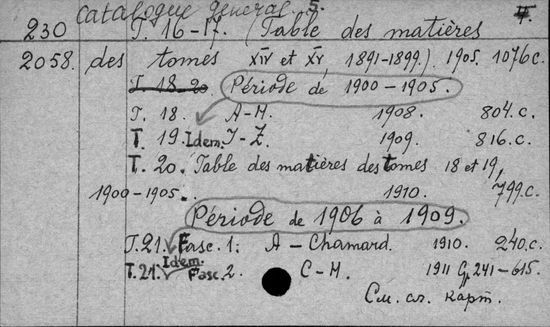 Catalogue général. 5. 4.
230 T. 16-17. (Table des matières
2058. des tomes XIV et XV 1891-1899.) 1905. 1076 c.
T. 18-20 Période de 1900-1905.
T. 18. A-H. 1908. 804.c.
T. 19. Idem. I-Z. 1909. 816.c.
T. 20. Table des matières des tomes 18 et 19,
1900-1905. 1910. 799.c.
Période de 1906 à 1909.
T.21. Fasc. 1. A - Chamard. 1910. 240.c.
Idem.
T.21. Fasc. 2. C-H. 1911 241-615.
См. сл. карт.